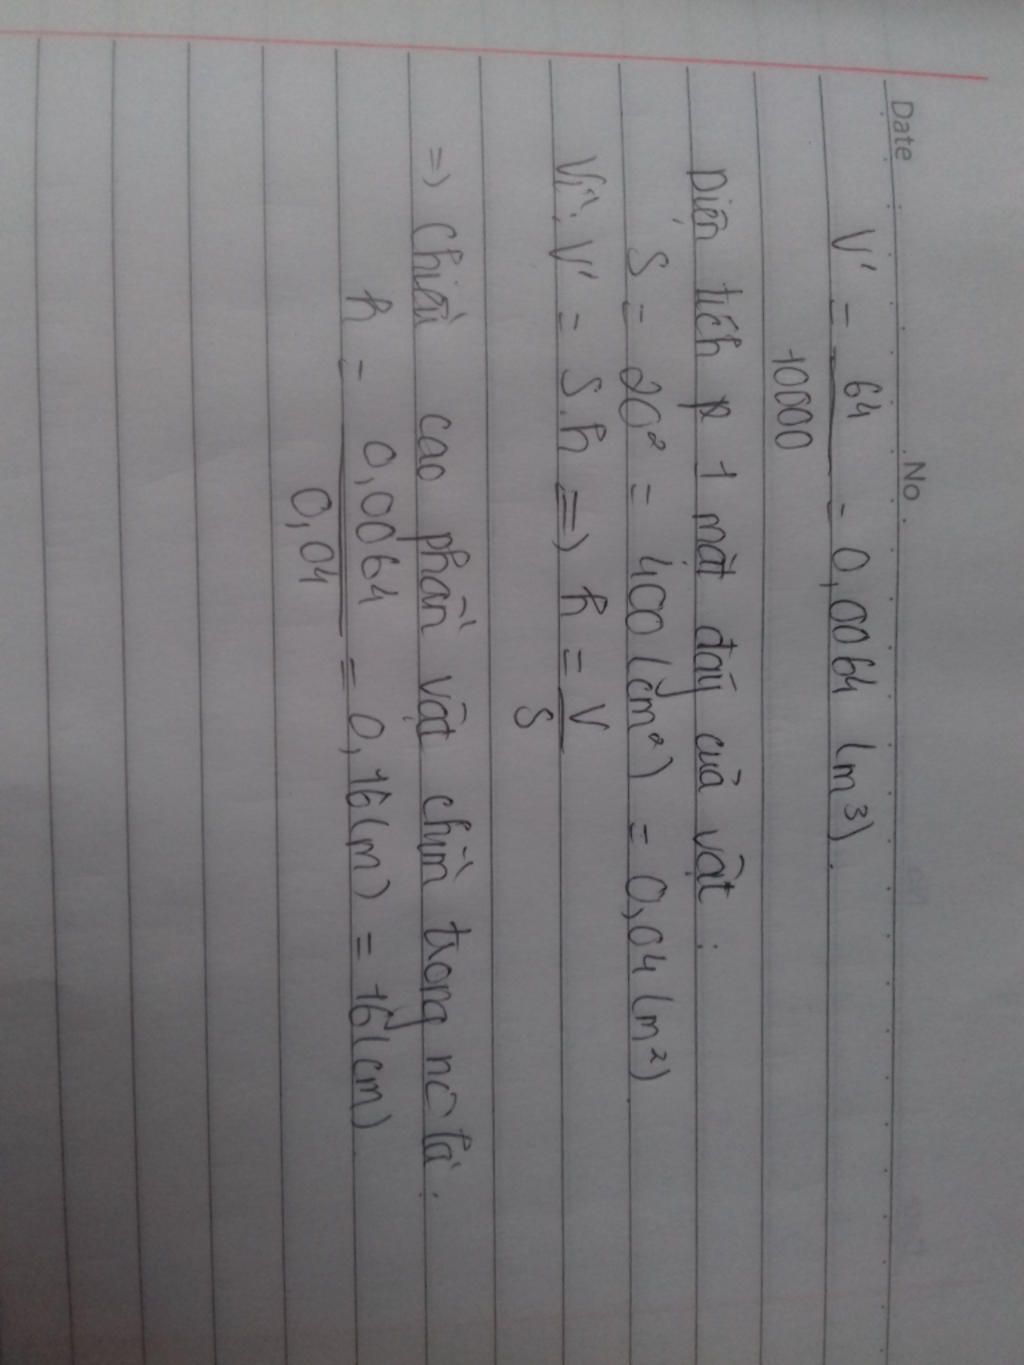 Date No
V' = 64 = 0,0064 (m³).
10000
Diện tích p 1 mặt đáy của vật:
S = 20² = 400 (cm²) = 0,04 (m²)
Vì: V' = S.h => h = V
S
=> Chiều cao phần vật chìm trong nc là:
h = 0,0064 = 0,16 (m) = 16 (cm)
0,04